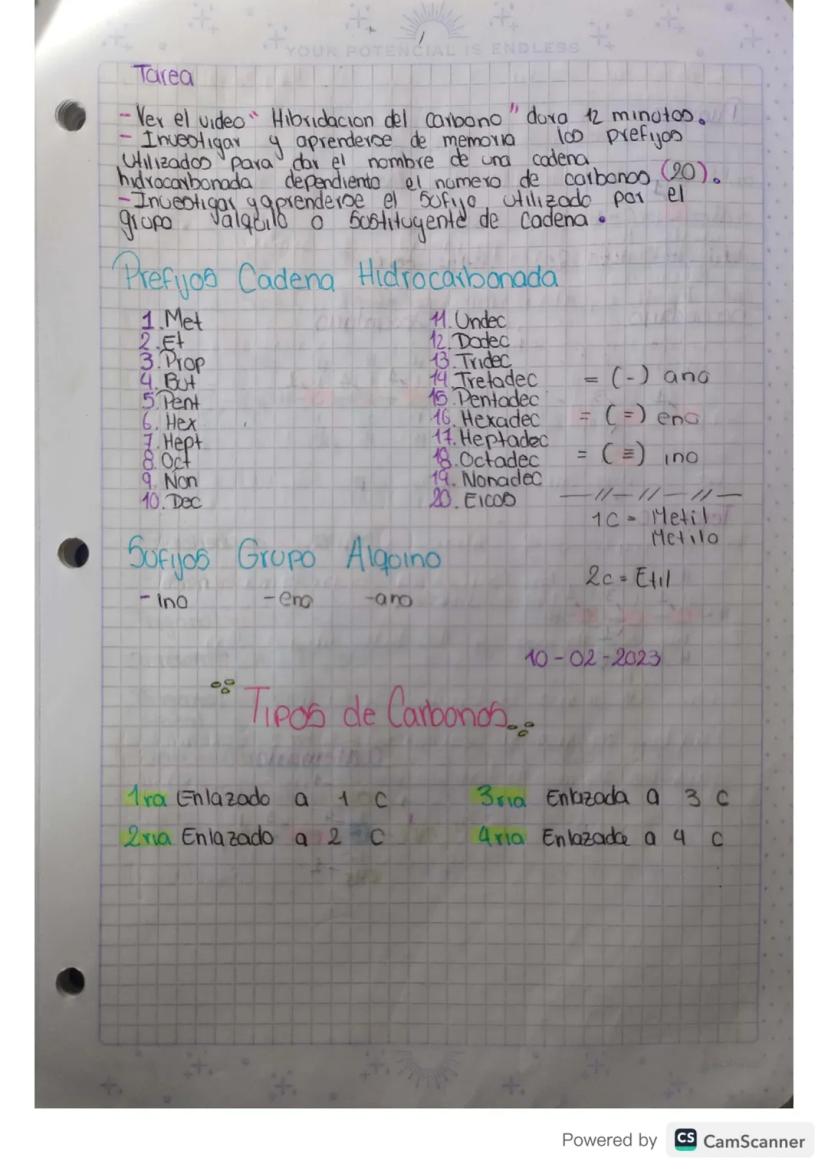 YOUR POTENCIAL IS ENDLESS
Tarea
- Ver el video "Hibridacion del carbono" dura 12 minutos.
- Investigar y aprenderse de memoria los prefijos
utilizados para dar el nombre de una cadena
hidrocarbonada dependiento el numero de carbonos (20).
- Investigar y aprenderse el sufijo utilizado por el
grupo alquilo o sustituyente de cadena.
Prefijos Cadena Hidrocarbonada
1. Met
2. Et
3. Prop
4. But
5. Pent
6. Hex
7. Hept
8. Oct
9. Non
10. Dec
11. Undec
12. Dodec
13. Tridec
14. Tretadec
15. Pentadec
16. Hexadec
17. Heptadec
18. Octadec
19. Nonadec
20. Eicos
= (-) ano
= (=) eno
= (≡) ino
1C = Metil
Metilo
2c = Etil
Sufijos Grupo Alquino
- Ino -eno -ano
10-02-2023
Tipos de Carbonos
1ra Enlazado a 1 C
2ria Enlazado a 2 C
3ria Enlazada a 3 C
4ria Enlazada a 4 C
Powered by CS CamScanner